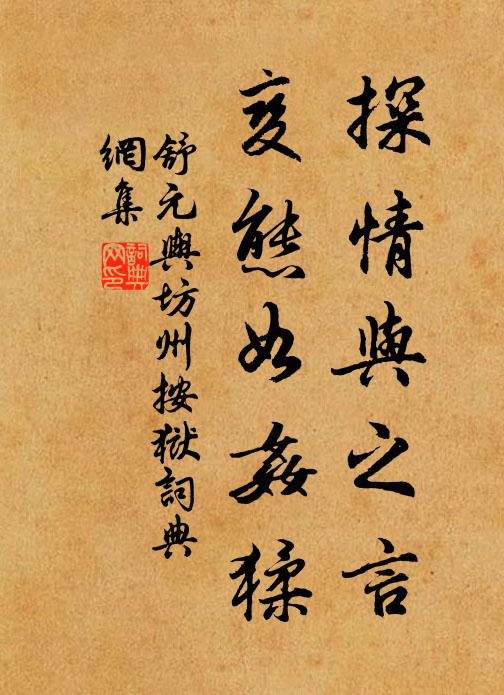 探情與之言
變態如姦猱
舒元輿坊州按獄詞典
網集
詞典網印